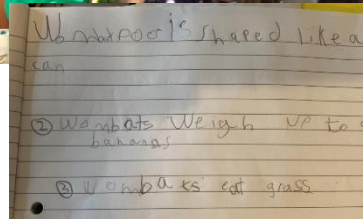 Wombat poo is shaped like a
can
② Wombats Weigh up to
bananas
③ Wombats eat grass